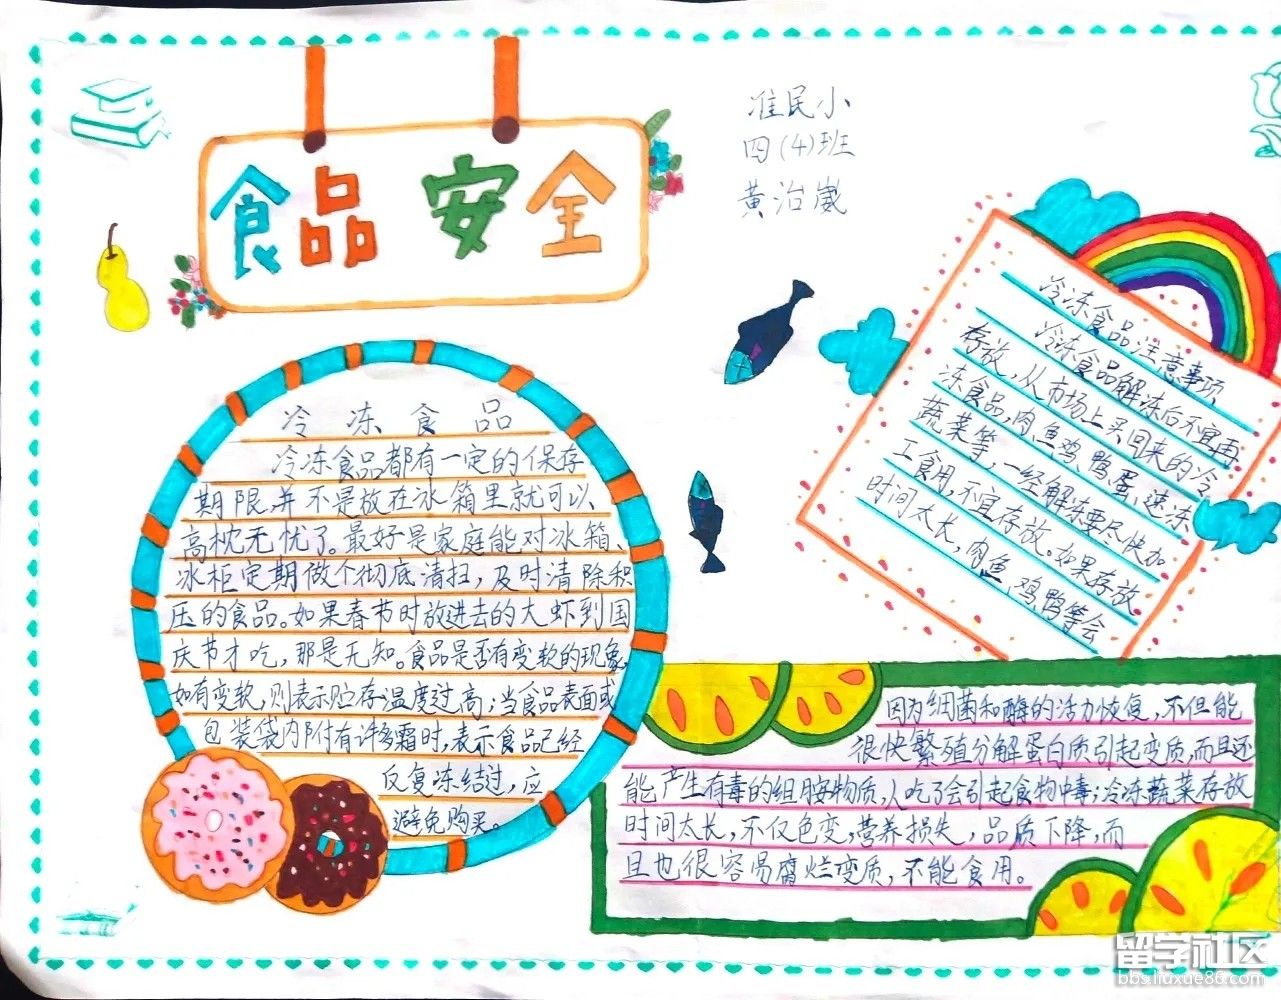 食品安全
准民小
四(4)班
黄治崴
冷冻食品
冷冻食品都有一定的保存
期限,并不是放在冰箱里就可以
高枕无忧了。最好是家庭能对冰箱、
冰柜定期做个彻底清扫，及时清除积
压的食品。如果春节时放进去的大虾到国
庆节才吃，那是无知。食品是否有变软的现象,
如有变软,则表示贮存温度过高;当食品表面或
包装袋内附有许多霜时,表示食品已经
反复冻结过，应
避免购买。
冷冻食品注意事项
冷冻食品解冻后不宜再
存放，从市场上买回来的冷
冻食品,肉、鱼、鸡、鸭、蛋、速冻
蔬菜等，一经解冻要尽快加
工食用,不宜存放。如果存放
时间太长，肉、鱼、鸡、鸭等会
因为细菌和酶的活力恢复,不但能
很快繁殖分解蛋白质引起变质,而且还
能产生有毒的组胺物质,人吃了会引起食物中毒;冷冻蔬菜存放
时间太长，不仅色变,营养损失，品质下降,而
且也很容易腐烂变质，不能食用。
留学社区
bbs.liuxue86.com